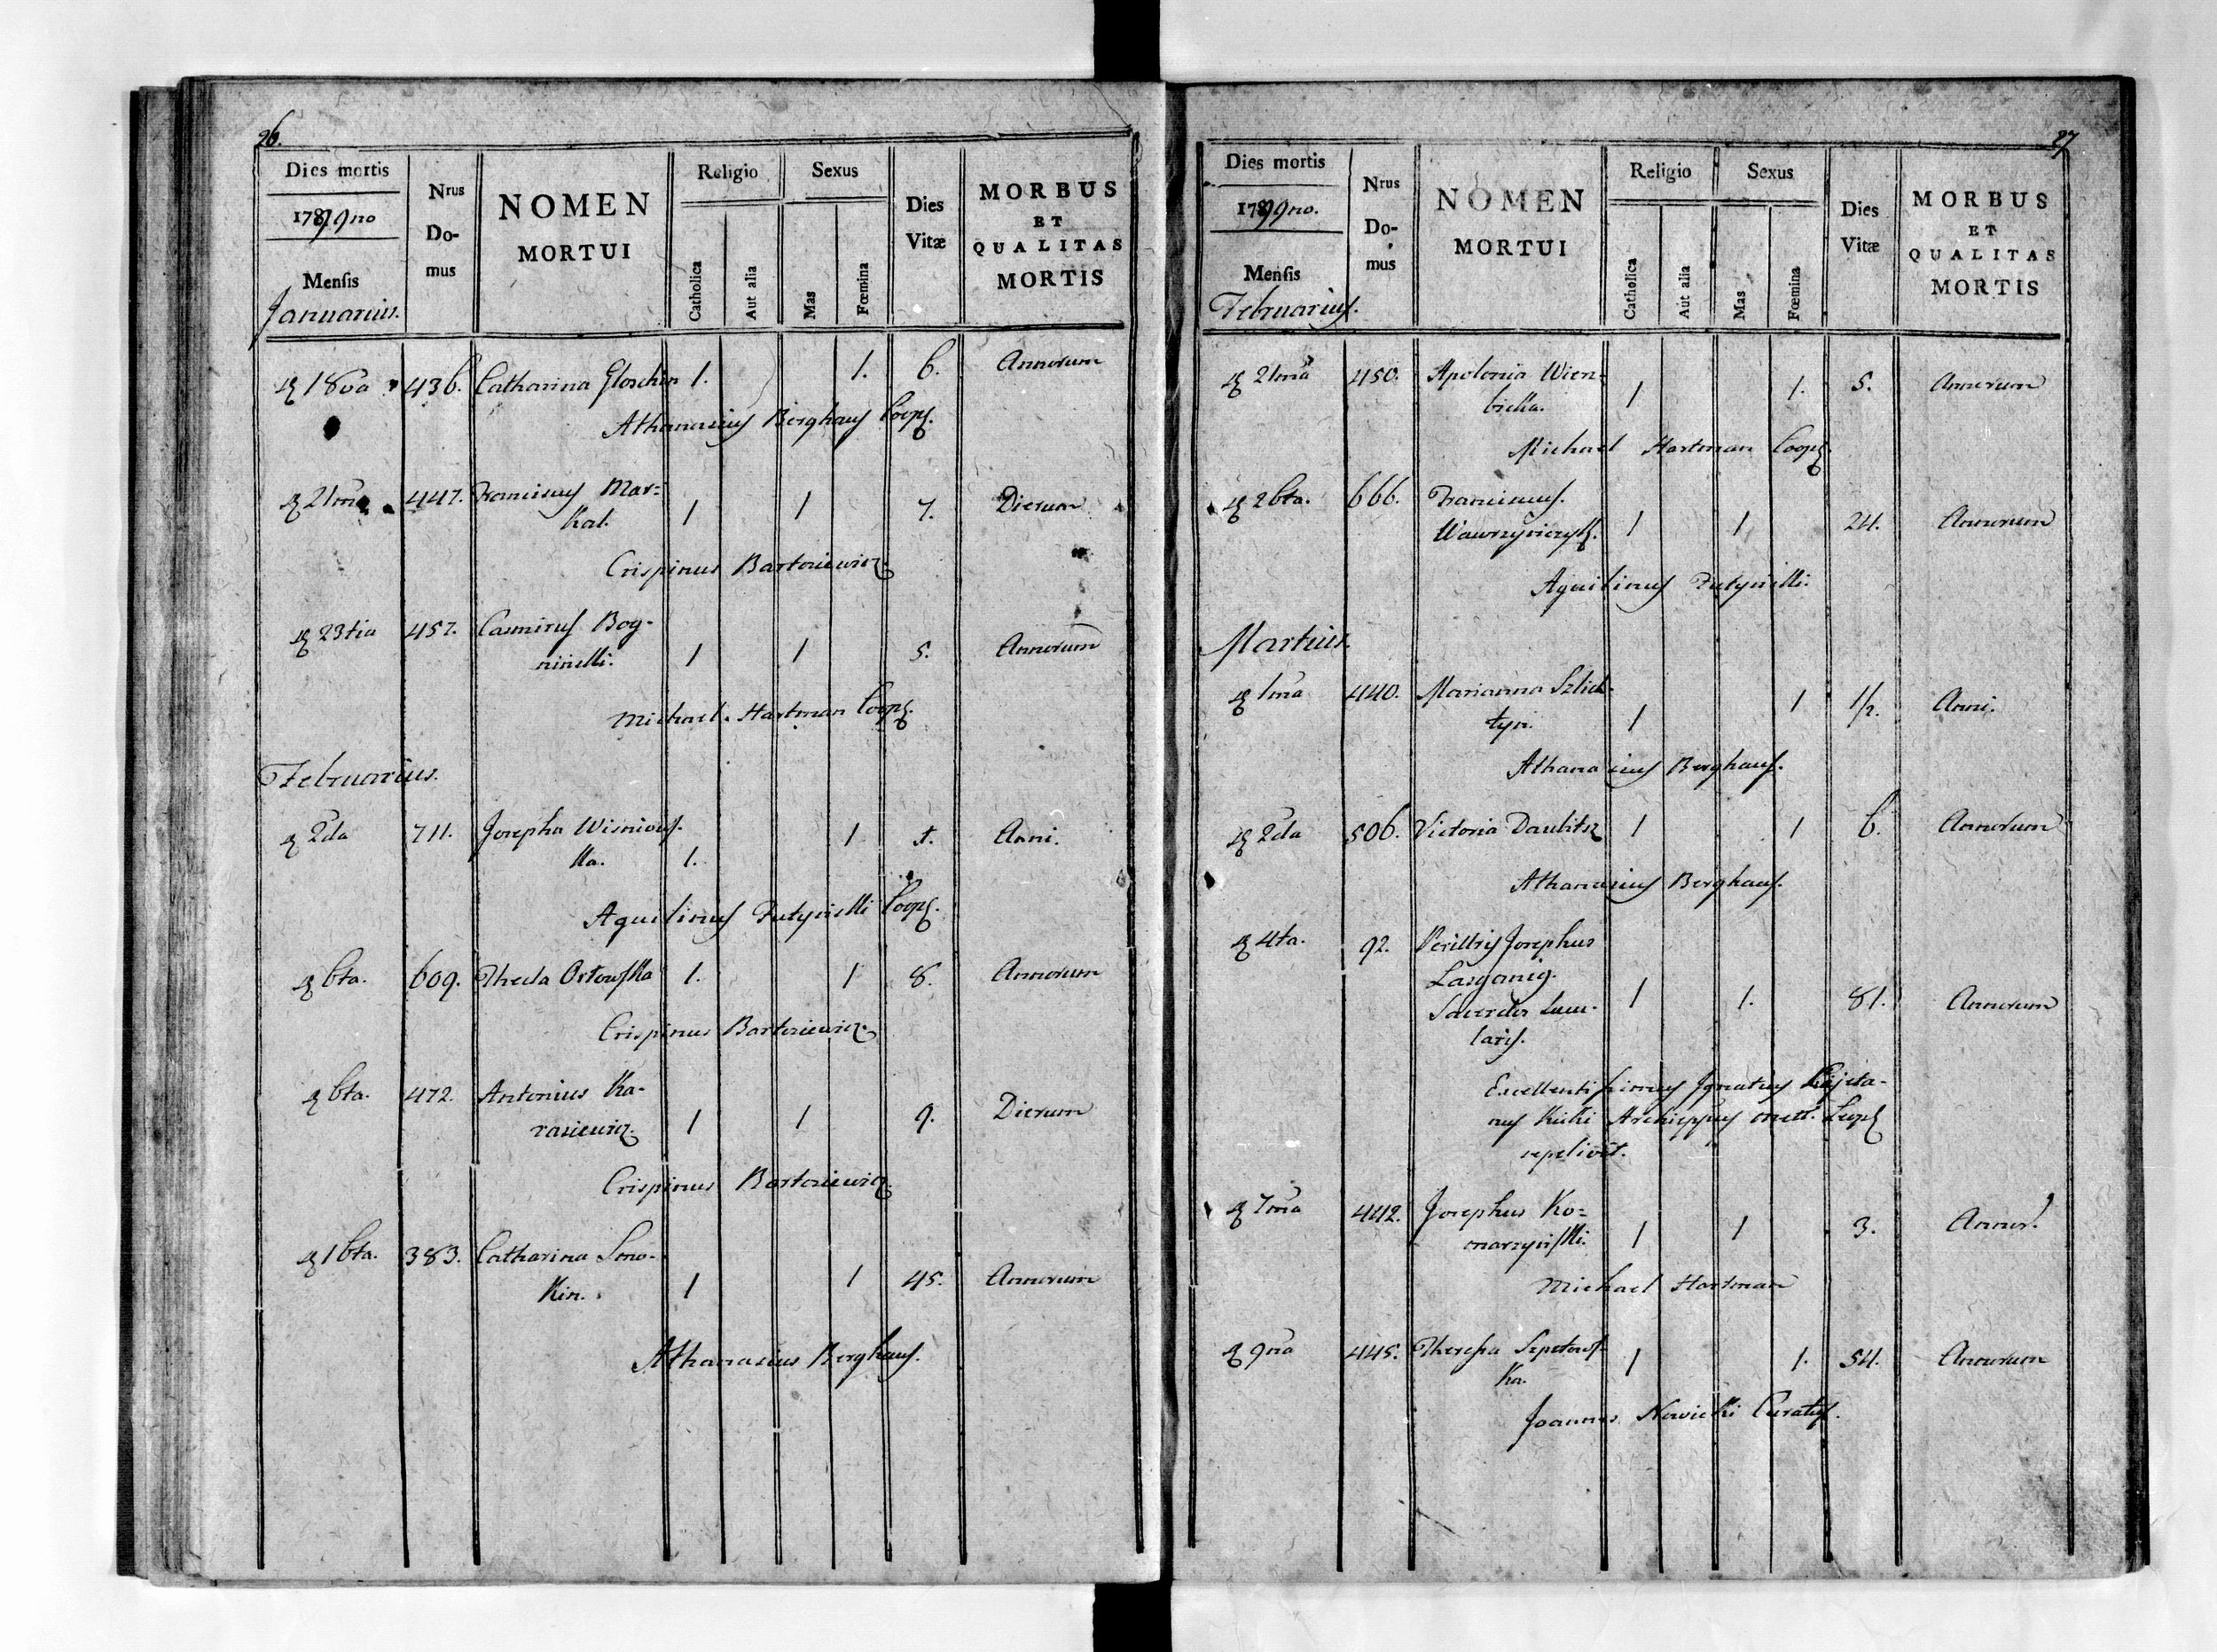 26.
Dies mortis
1799no
Mensis
Januarius.
Nrus
Do-
mus
NOMEN
MORTUI
Religio
Catholica
Aut alia
Sexus
Mas
Fœmina
Dies
Vitæ
MORBUS
ET
QUALITAS
MORTIS
18va 436. Catharina Gloschin 1. 1. 6. Annorum
Athanasius Berghaus Coop.
21ma 447. Franciscus Mar=
kal. 1 1 7. Dierum
Crispinus Bartoziewicz
23tia 457. Casimirus Bog-
ninski. 1 1 5. Annorum
Michael Hartman Coop.
Februarius.
2da 711. Josepha Wisniows-
ka. 1. 1 1. Anni.
Aquilinus Coop.
6ta. 609. Thecla Ortowska 1. 1 8. Annorum
Crispinus Bartoziewicz
6ta. 472. Antonius Ka-
rasiewicz. 1 1 9. Dierum
Crispinus Bartoziewicz
16ta. 383. Catharina Smo-
kin. 1 1 45. Annorum
Athanasius Berghaus.
27
Dies mortis
1799no.
Mensis
Februarius.
Nrus
Do-
mus
NOMEN
MORTUI
Religio
Catholica
Aut alia
Sexus
Mas
Fœmina
Dies
Vitæ
MORBUS
ET
QUALITAS
MORTIS
21ma 450. Apolonia Wierz-
bicka. 1 1. 5. Annorum
Michael Hartman Coop.
26ta. 666. Franciscus
1 1 24. Annorum
Aquilinus
Martius.
1ma 440. Marianna Szlich-
tyn. 1 1 1/2. Anni.
Athanasius Berghaus.
2da 506. Victoria Daulitsz 1 1 6. Annorum
Athanasius Berghaus.
4ta. 92. Perillris Josephus
Lasganig.
Sacerdos Saecu-
laris. 1 1. 81. Annorum
Excellentissimus Ignatius Kajeta-
nus Kicki Archieppus Leopol
sepelivit.
7ma 442. Josephus Ko=
marzynski. 1 1 3. Annor.
Michael Hartman
9na 445. Theresia Szeptows-
ka. 1 1. 54. Annorum
Joannes Nowicki Curatus.